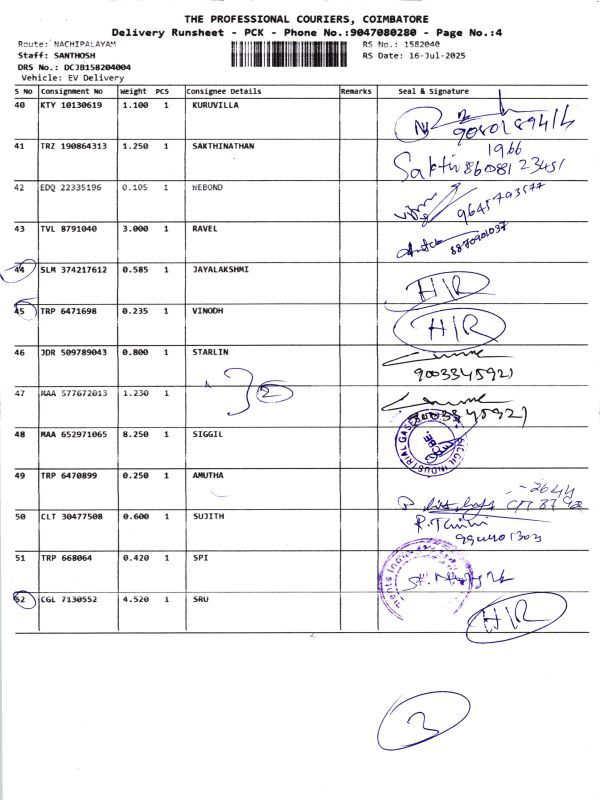 THE PROFESSIONAL COURIERS, COIMBATORE
Delivery Runsheet - PCK - Phone No.:9047080280 - Page No.:4
Route: NACHIPALAYAM RS No.: 1582040
Staff: SANTHOSH RS Date: 16-Jul-2025
DRS No.: DCJB158204004
Vehicle: EV Delivery
S No Consignment No Weight PCS Consignee Details Remarks Seal & Signature
40 KTY 10130619 1.100 1 KURUVILLA
41 TRZ 190864313 1.250 1 SAKTHINATHAN 1966
Sakthi 8608123451
42 EDQ 22335196 0.105 1 NEBOND 9645793577
43 TVL 8791040 3.000 1 RAVEL 8870901037
44 SLM 374217612 0.585 1 JAYALAKSHMI H/R
45 TRP 6471698 0.235 1 VINODH H/R
46 JDR 509789043 0.800 1 STARLIN
9003345921
47 MAA 577672013 1.230 1 2
9003345921
48 MAA 652971065 8.250 1 SIGGIL
INDUSTRIAL GASE
49 TRP 6470899 0.250 1 AMUTHA
50 CLT 30477508 0.600 1 SUJITH
51 TRP 668064 0.420 1 SPI
52 CGL 7130552 4.520 1 SRU H/R
3